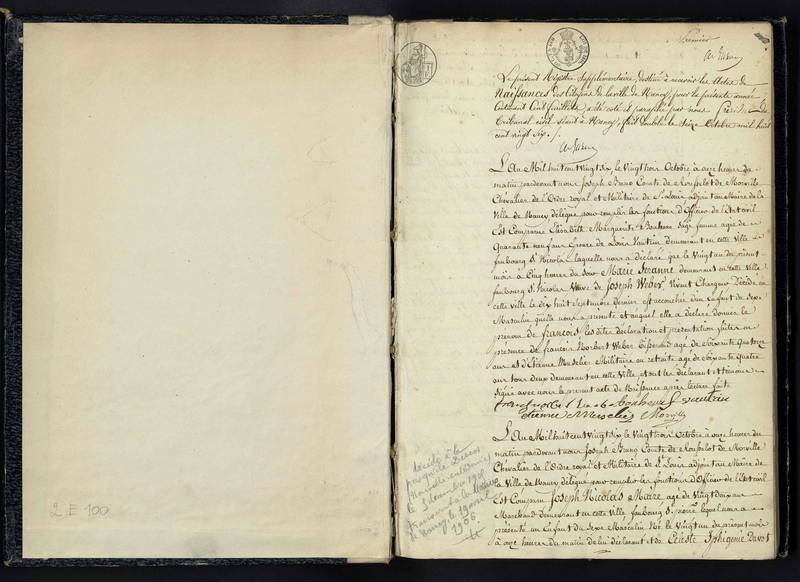 2 E 100
Premier
Le présent Registre Supplémentaire, destiné à recevoir les Actes de
Naissances des Citoyens de la ville de Nancy, pour la présente année
contenant Cent feuillets, a été coté et paraphé par nous Président du
Tribunal civil séant à Nancy, fait double le Seize Octobre mil huit
cent vingt Six ./.
L'an Mil huit cent Vingt Six, le Vingt trois Octobre à onze heures du
matin pardevant nous Joseph Bruno Comte de Rousselot de Morville
Chevalier de l'Ordre royal et Militaire de St Louis adjoint au Maire de la
Ville de Nancy délégué pour remplir les fonctions d'Officier de l'Etat civil
Est Comparue Elisabeth Marguerite Bonheure Sage femme agée de
Quarante neuf ans Epouse de Louis Vautrin demeurant en cette Ville
faubourg St Nicolas laquelle nous a déclaré que le Vingt un du présent
mois à Cinq heures du Soir Marie Jeanne demeurant en cette Ville
faubourg St Nicolas Veuve de Joseph Weber Vivant Chargeur Décédé en
cette ville le dix huit Septembre dernier est accouchée d'un Enfant du Sexe
Masculin qu'elle nous a présenté et auquel elle a déclaré donner le
prénom de francois les dites déclaration et présentation faites en
présence de francois Norbert Weber agé de Soixante quatorze
ans et d'Etienne Muselier Militaire en retraite agé de Soixante Quatre
ans tous deux demeurant en cette Ville, et ont les déclarant et témoins
Signé avec nous le présent acte de Naissance après lecture faite
Bonheure f vautrin
étienne Muselier Morville
L'an Mil huit cent Vingt Six le Vingt trois Octobre à onze heures du
matin pardevant nous Joseph Bruno Comte de Rousselot de Morville
Chevalier de l'Ordre royal et Militaire de St Louis adjoint au Maire de
la Ville de Nancy délégué pour remplir les fonctions d'Officier de l'Etat civil
Est Comparu Joseph Nicolas Maire agé de Vingt deux ans
Marchand demeurant en cette ville faubourg St pierre lequel nous a
présenté un Enfant du Sexe Masculin Né le Vingt un du présent mois
à onze heures du matin de lui déclarant et de Celeste Iphigenie Davot
décédé à la